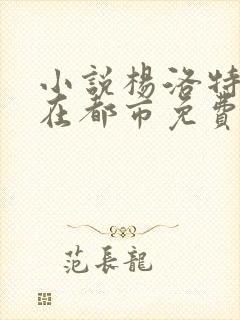 小說楊洛特
在都市免費
范長龍